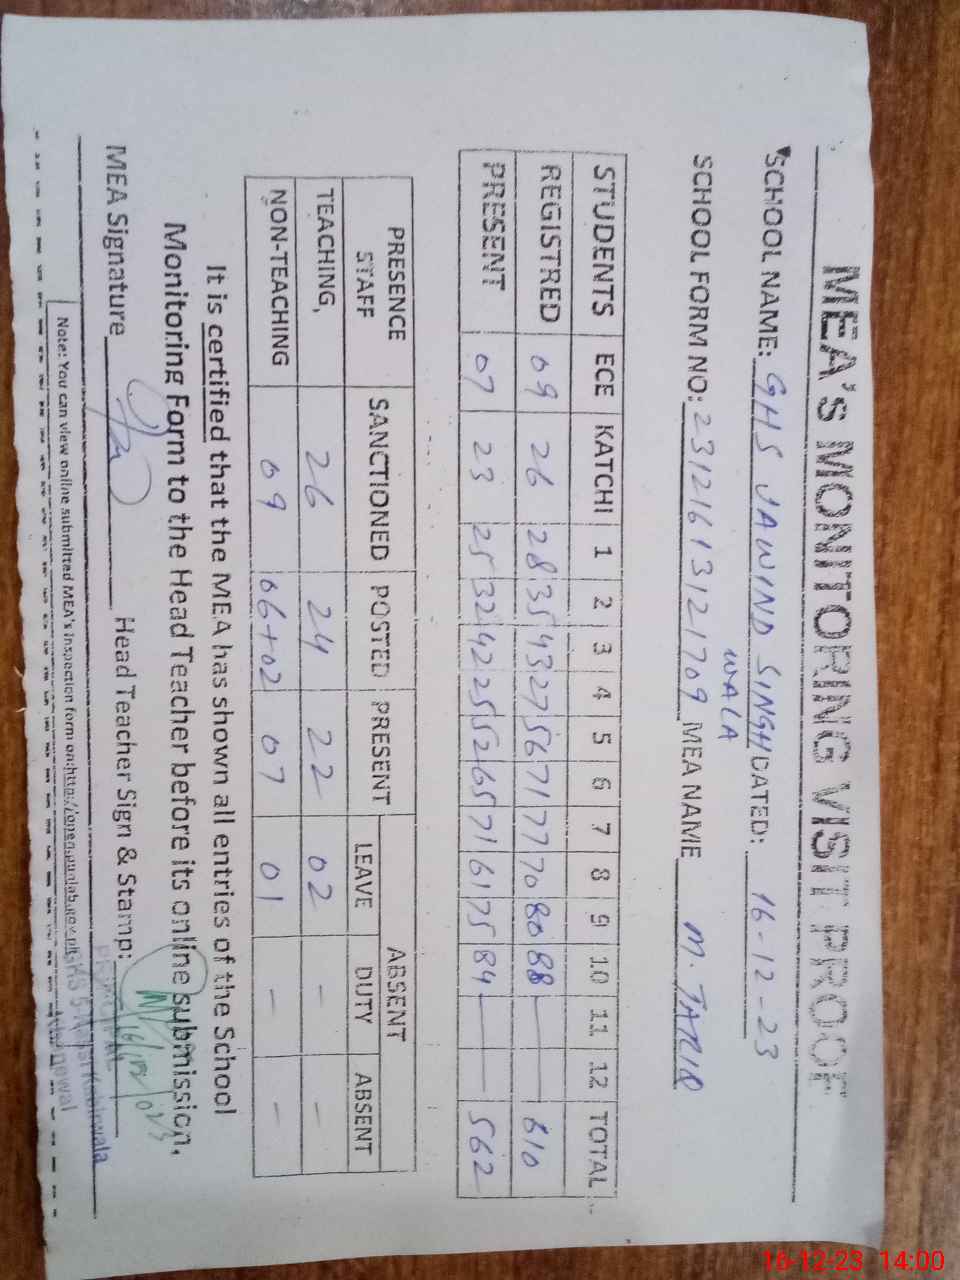 MEA'S MONITORING VISIT PROOF
SCHOOL NAME: GHS JAWIND SINGH DATED: 16-12-23
WALA
SCHOOL FORM NO: 231216131217 09 MEA NAME M. TARIQ
STUDENTS ECE KATCHI 1 2 3 4 5 6 7 8 9 10 11 12 TOTAL
REGISTRED 09 26 28 35 43 27 56 71 77 70 80 88 — — 610
PRESENT 07 23 25 32 42 25 52 65 71 61 75 84 — — 562
PRESENCE STAFF SANCTIONED POSTED PRESENT ABSENT
LEAVE DUTY ABSENT
TEACHING, 26 24 22 02 - -
NON-TEACHING 09 06+02 07 01 - -
It is certified that the MEA has shown all entries of the School
Monitoring Form to the Head Teacher before its online submission.
MEA Signature Head Teacher Sign & Stamp:
PRINCIPAL
Note: You can view online submitted MEA's inspection form on:http://open.punjab.gov.pk
16-12-23 14:00